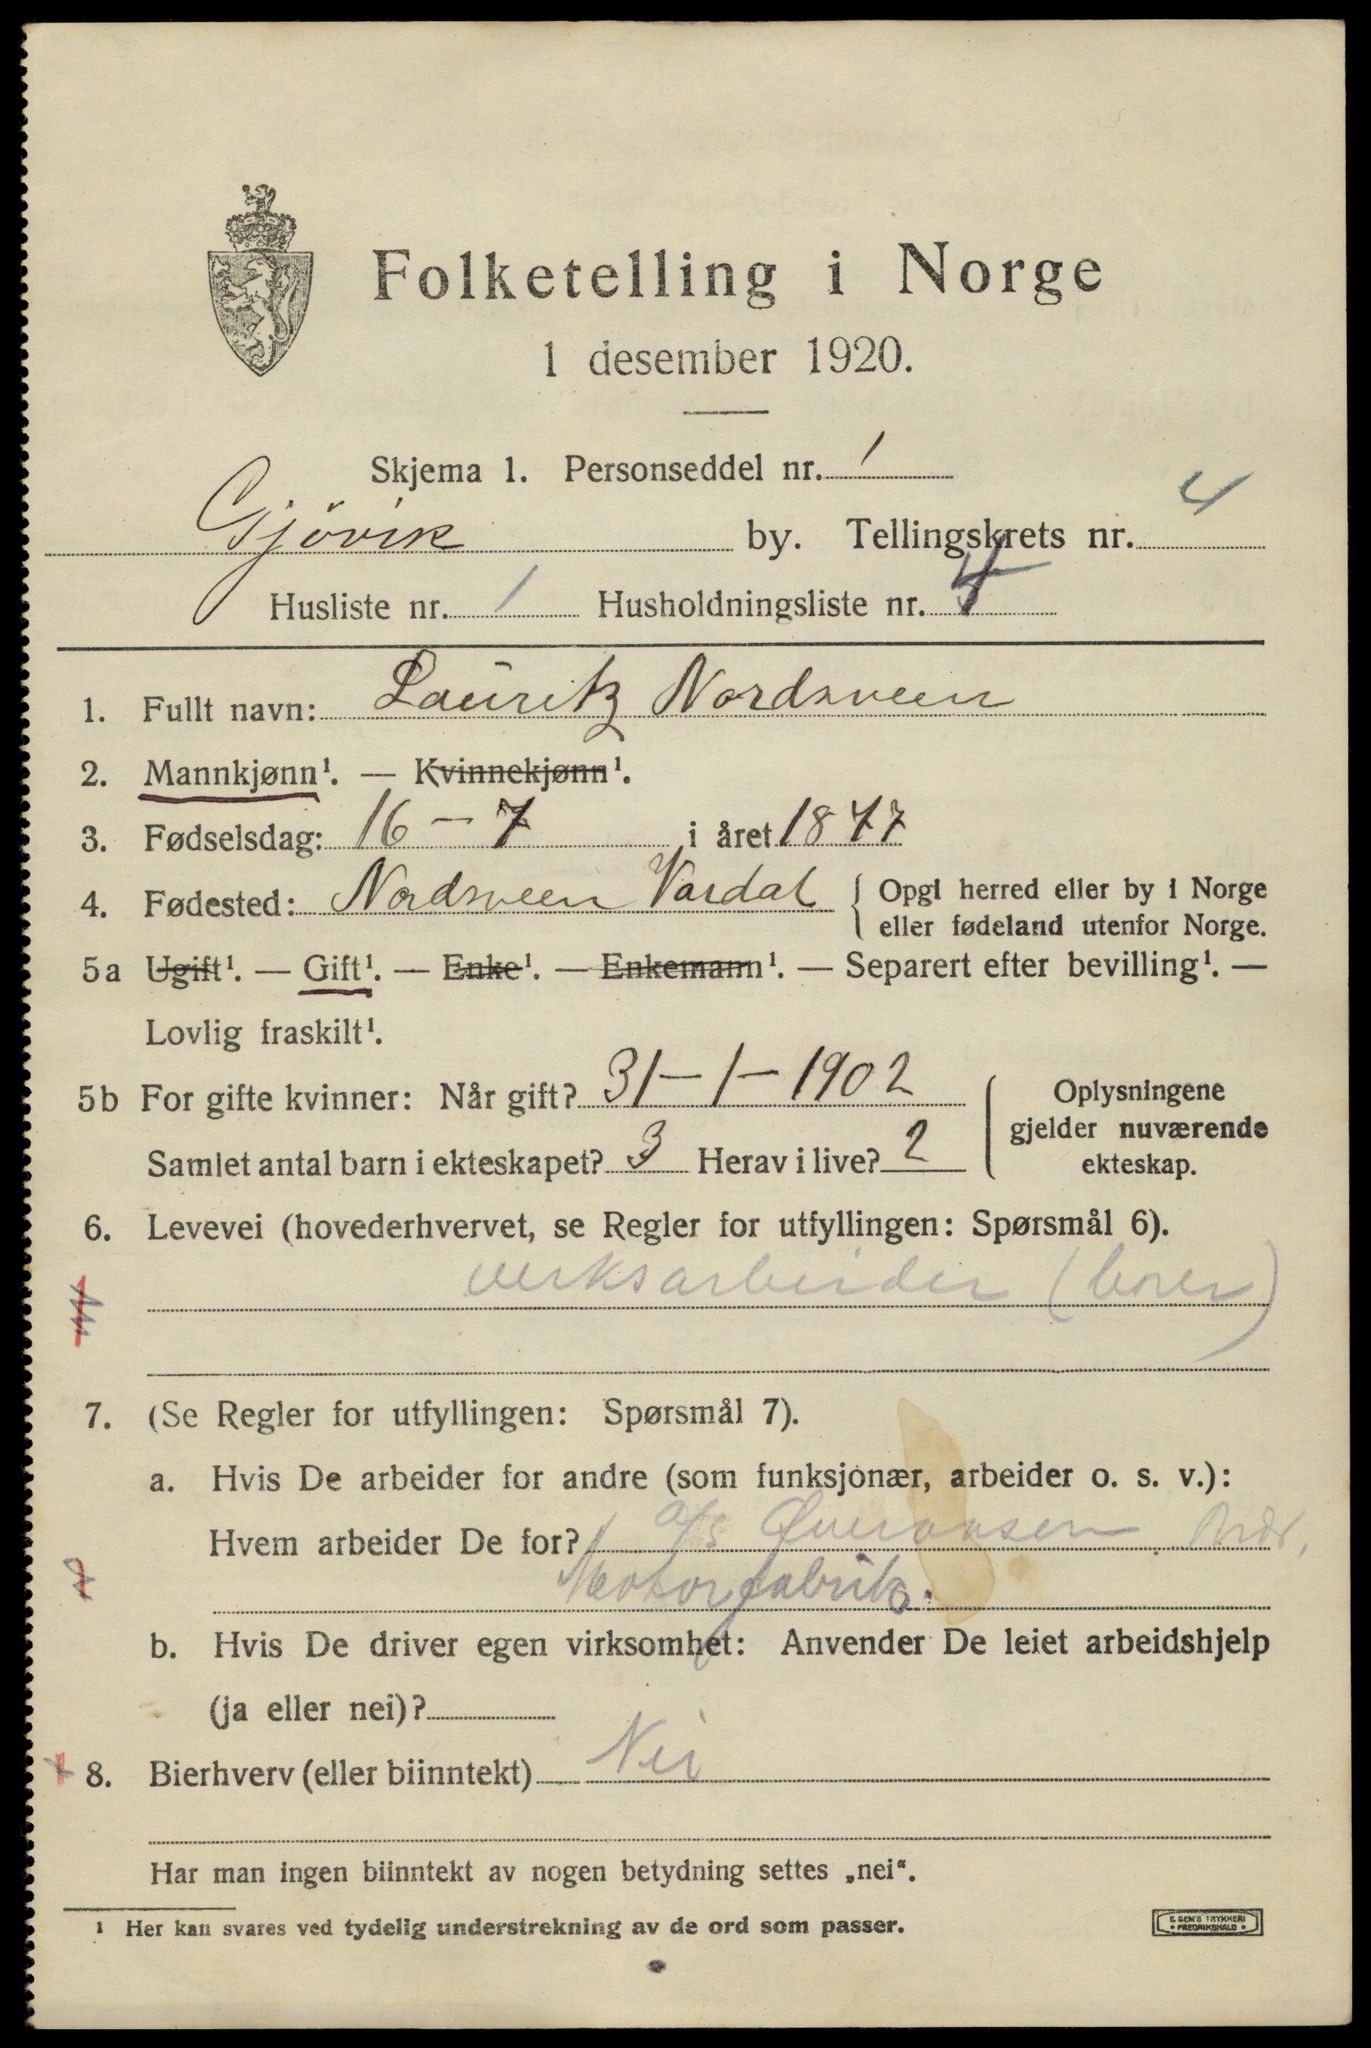 Folketelling i Norge
1 desember 1920.
Skjema 1. Personseddel nr. 1
Gjövik by. Tellingskrets nr. 4
Husliste nr. 1 Husholdningsliste nr. 4
1. Fullt navn: Lauritz Nordsveen
2. Mannkjønn¹. — Kvinnekjønn¹.
3. Fødselsdag: 16 – 7 i året 1877
4. Fødested: Nordsveen Vardal { Opgi herred eller by i Norge
eller fødeland utenfor Norge.
5a Ugift¹. — Gift¹. — Enke¹. — Enkemann¹. — Separert efter bevilling¹. —
Lovlig fraskilt¹.
5b For gifte kvinner: Når gift? 31 – 1 – 1902 Oplysningene
gjelder nuværende
Samlet antal barn i ekteskapet? 3 Herav i live? 2 ekteskap.
6. Levevei (hovederhvervet, se Regler for utfyllingen: Spørsmål 6).
verksarbeider (borer)
7. (Se Regler for utfyllingen: Spørsmål 7).
a. Hvis De arbeider for andre (som funksjonær, arbeider o. s. v.):
Hvem arbeider De for? A/S Brdr.
Motorfabrik.
b. Hvis De driver egen virksomhet: Anvender De leiet arbeidshjelp
(ja eller nei)?
8. Bierhverv (eller biinntekt) Nei
Har man ingen biinntekt av nogen betydning settes „nei“.
¹ Her kan svares ved tydelig understrekning av de ord som passer.
E. SEM'S TRYKKERI
FREDRIKSHALD